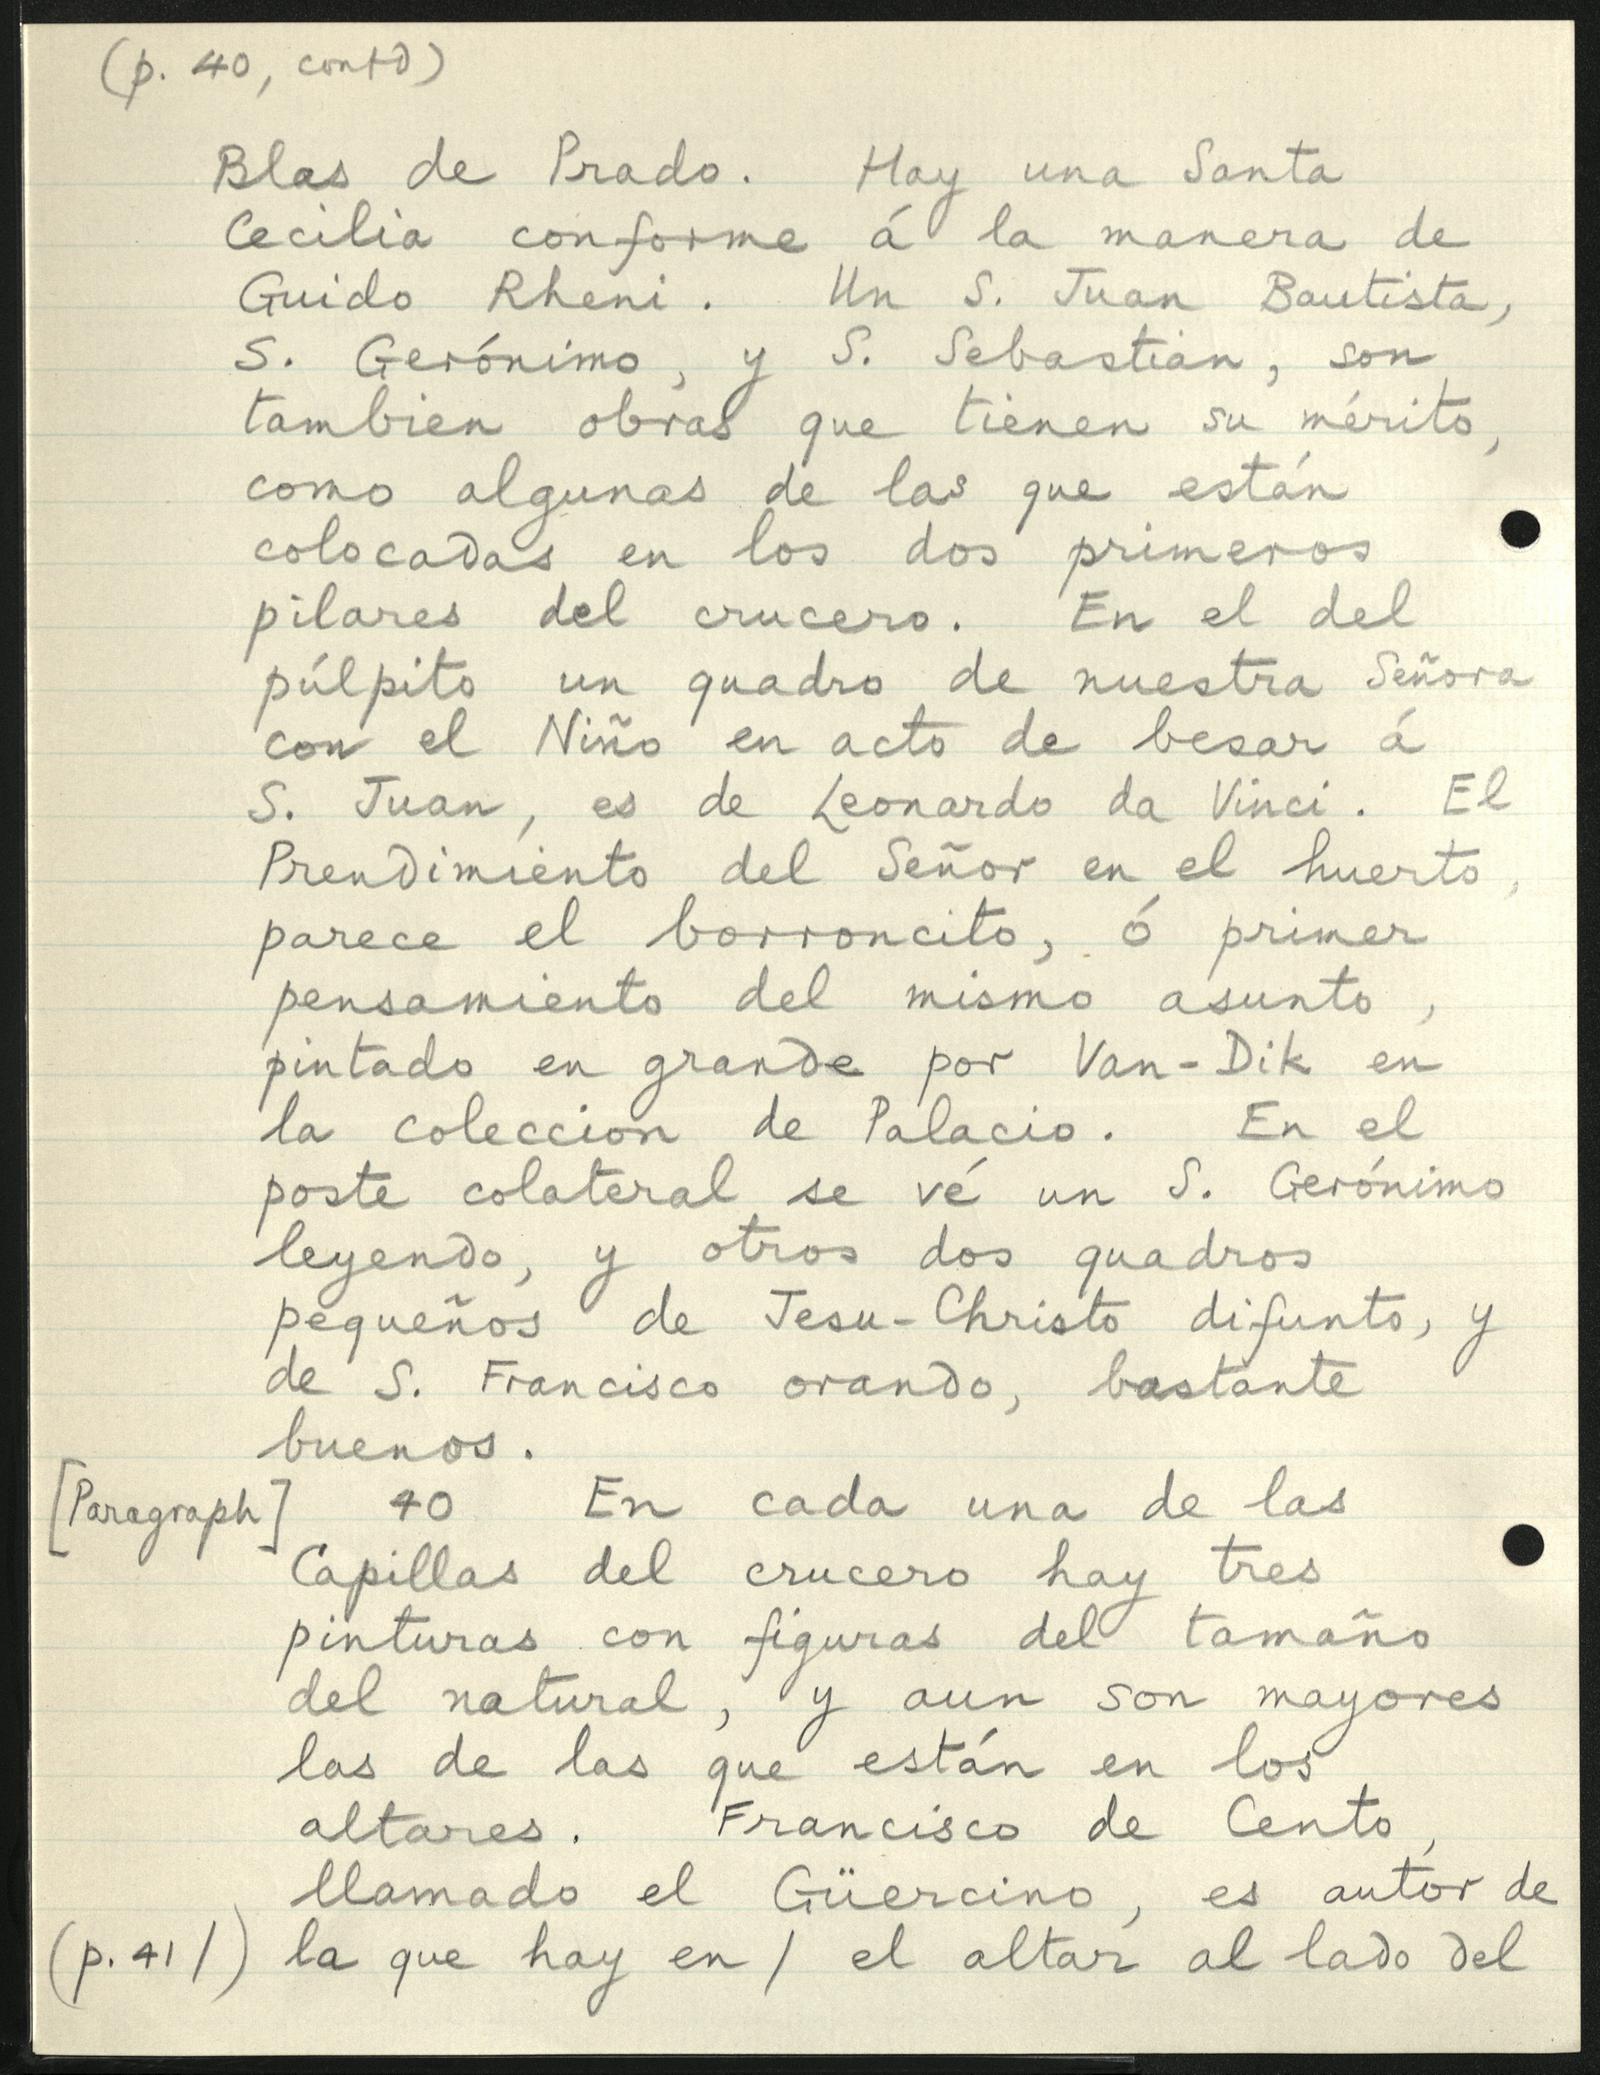 (p. 40, contd)
Blas de Prado. Hay una Santa
Cecilia conforme á la manera de
Guido Rheni. Un S. Juan Bautista,
S. Gerónimo, y S. Sebastian, son
tambien obras que tienen su mérito,
como algunas de las que están
colocadas en los dos primeros
pilares del crucero. En el del
púlpito un quadro de nuestra Señora
con el Niño en acto de besar á
S. Juan, es de Leonardo da Vinci. El
Prendimiento del Señor en el huerto,
parece el borroncito, ó primer
pensamiento del mismo asunto,
pintado en grande por Van-Dik en
la coleccion de Palacio. En el
poste colateral se vé un S. Gerónimo
leyendo, y otros dos quadros
pequeños de Jesu-Christo difunto, y
de S. Francisco orando, bastante
buenos.
[Paragraph] 40 En cada una de las
Capillas del crucero hay tres
pinturas con figuras del tamaño
del natural, y aun son mayores
las de las que están en los
altares. Francisco de Cento,
llamado el Güercino, es autor de
(p. 41/) la que hay en / el altar al lado del